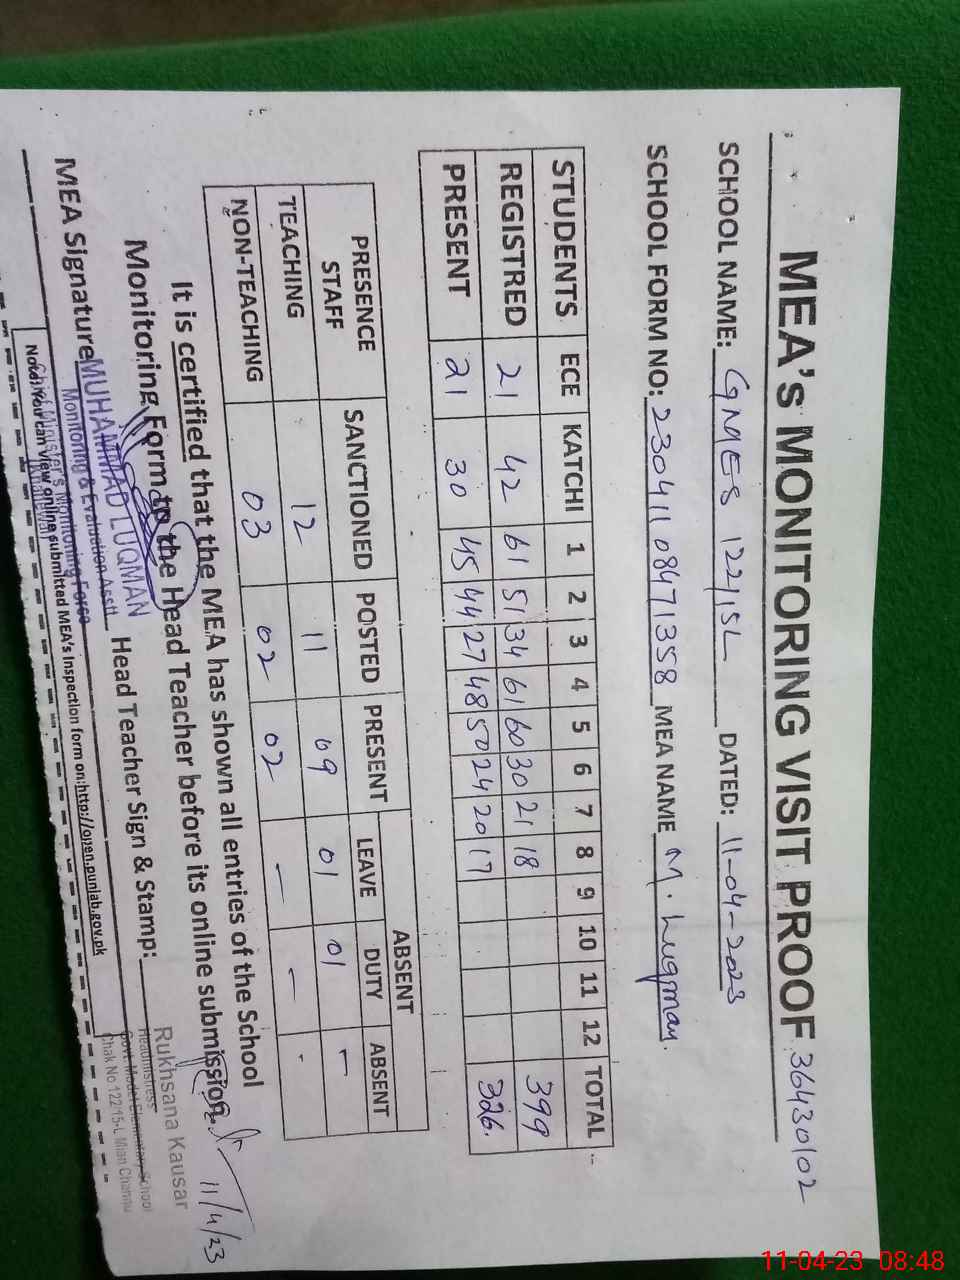 MEA'S MONITORING VISIT PROOF 36430102
SCHOOL NAME: GMES 122/15L DATED: 11-04-2023
SCHOOL FORM NO: 230411 08471358 MEA NAME M. Luqman.
STUDENTS ECE KATCHI 1 2 3 4 5 6 7 8 9 10 11 12 TOTAL
REGISTRED 21 42 61 51 34 61 60 30 21 18 399
PRESENT 21 30 45 44 27 48 50 24 20 17 326.
PRESENCE STAFF SANCTIONED POSTED PRESENT ABSENT
LEAVE DUTY ABSENT
TEACHING 12 11 09 01 01 -
NON-TEACHING 03 02 02 - - -
It is certified that the MEA has shown all entries of the School
Monitoring Form to the Head Teacher before its online submission.
11/4/23
MEA Signature Head Teacher Sign & Stamp:
MUHAMMAD LUQMAN
Monitoring & Evaluation Asstt.
Chief Minister's Monitoring Force
Khanewal
Rukhsana Kausar
Headmistress
Govt. Model Elementary School
Chak No.122/15-L Mian Channu
Note: You can view online submitted MEA's Inspection form on:http://open.punjab.gov.pk
11-04-23 08:48